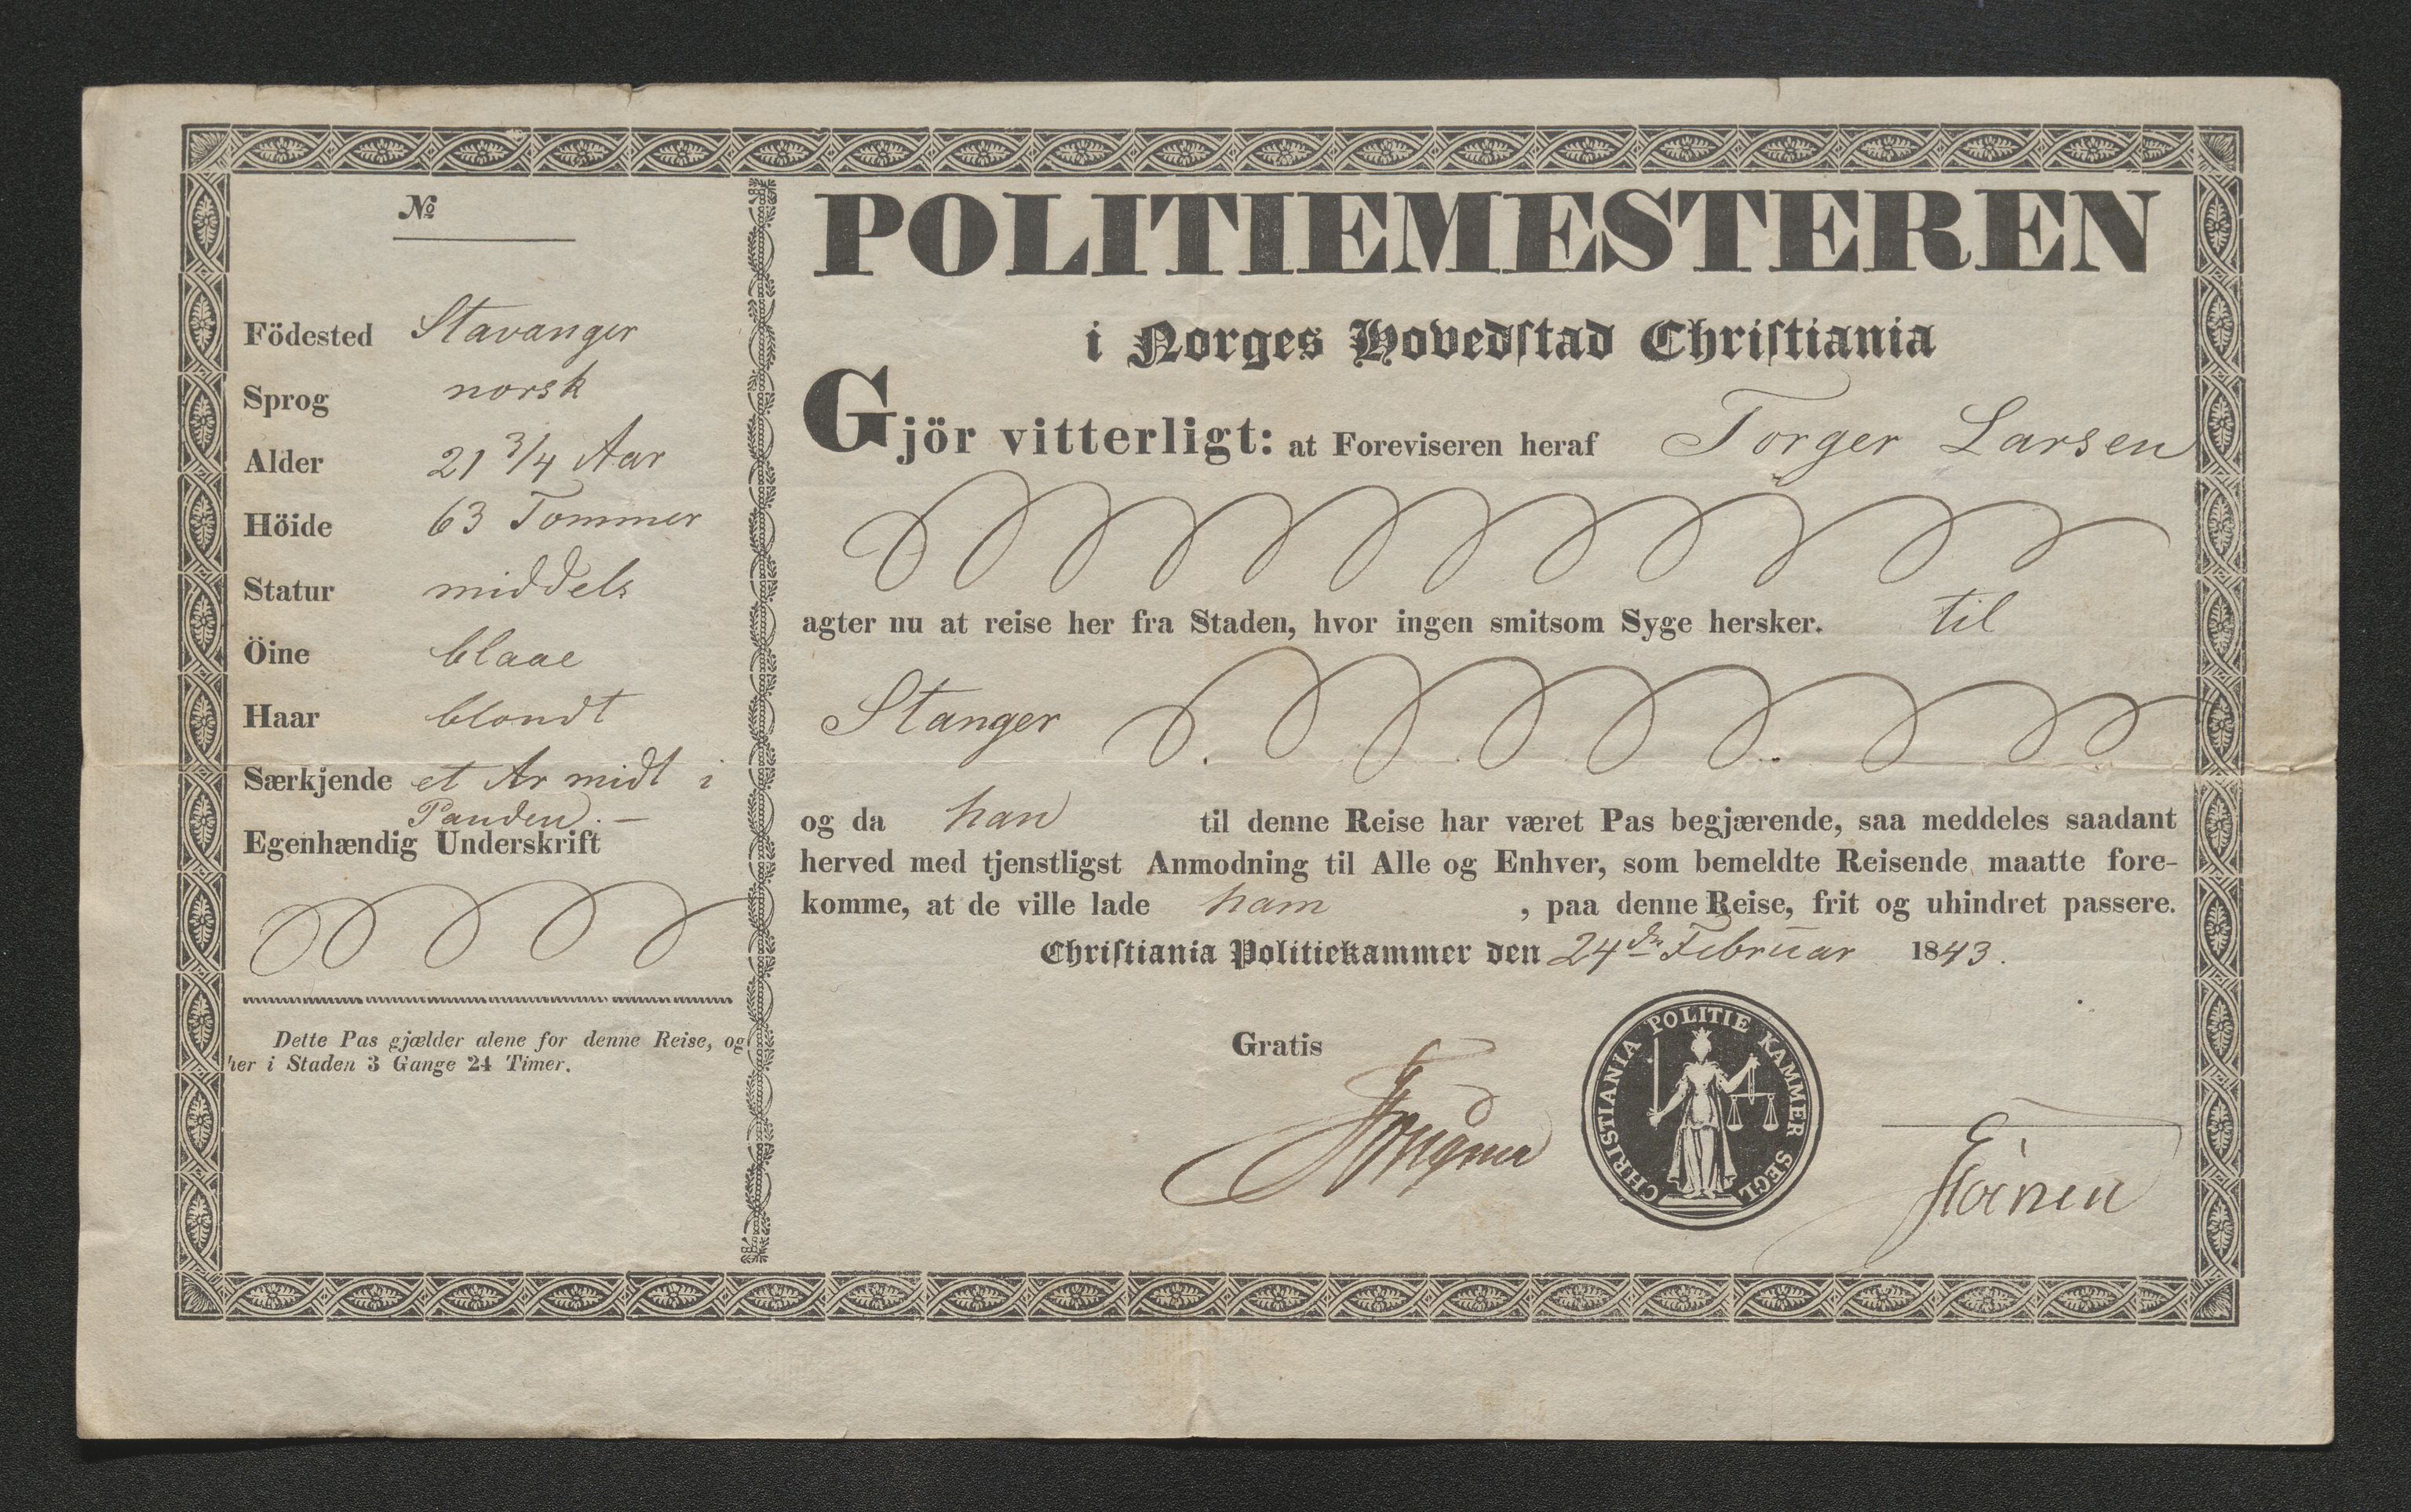 №
Födested Stavanger
Sprog norsk
Alder 21 3/4 Aar
Höide 63 Tommer
Statur middels
Öine blaae
Haar blondt
Særkjende et Ar midt i
Panden. —
Egenhændig Underskrift
Dette Pas gjælder alene for denne Reise, og
her i Staden 3 Gange 24 Timer.
POLITIEMESTEREN
i Norges Hovedſtad Chriſtiania
Gjör vitterligt: at Foreviseren heraf Torger Larsen
agter nu at reise her fra Staden, hvor ingen smitsom Syge hersker. til
Stanger
og da han til denne Reise har været Pas begjærende, saa meddeles saadant
herved med tjenstligst Anmodning til Alle og Enhver, som bemeldte Reisende maatte fore-
komme, at de ville lade ham , paa denne Reise, frit og uhindret passere.
Chriſtiania Politiekammer den 24de Februar 1843.
Gratis
CHRISTIANIA POLITIE KAMMER SEGL